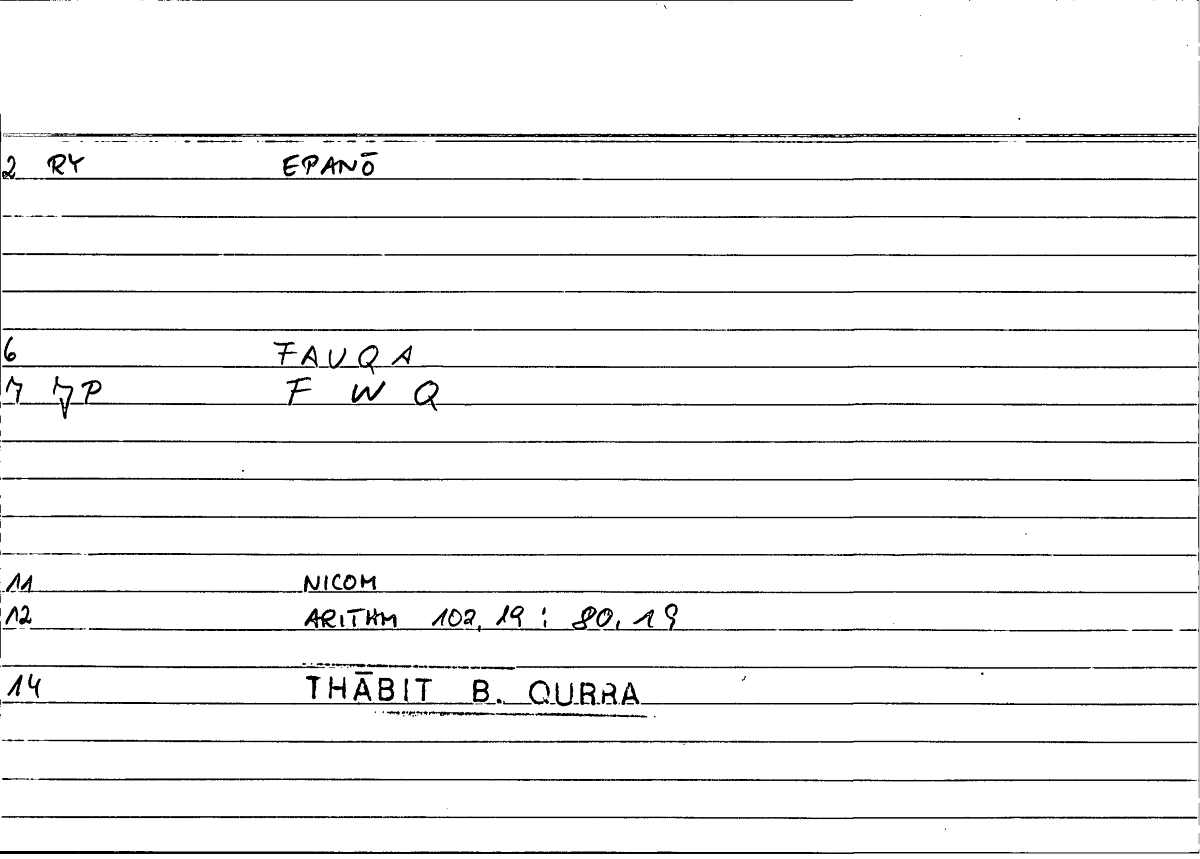 2 RY EPANŌ
6 FAUQA
7 P F W Q
11 NICOM
12 ARITHM 102, 19 : 80, 19
14 THĀBIT B. QURRA